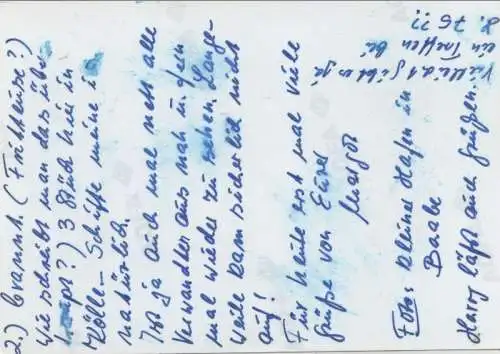 2.) brannt. (Fritteuse?)
Wie schreibt man das übri-
gens?) 3 Stück hier in
Kölle - Schiffe meine i
natürlich.
Ist ja auch mal nett alle
Verwandten aus nah u. fern
mal wieder zu sehen. Lange-
weile kam sicherlich nicht
auf!
Für heute erst mal viele
Grüße von Eurer
Margot
Fotos kleiner Hafen in
Baabe
Harry läßt auch grüßen.
Vielleicht gibt es ja
ein Treffen bei
J. 75 ??